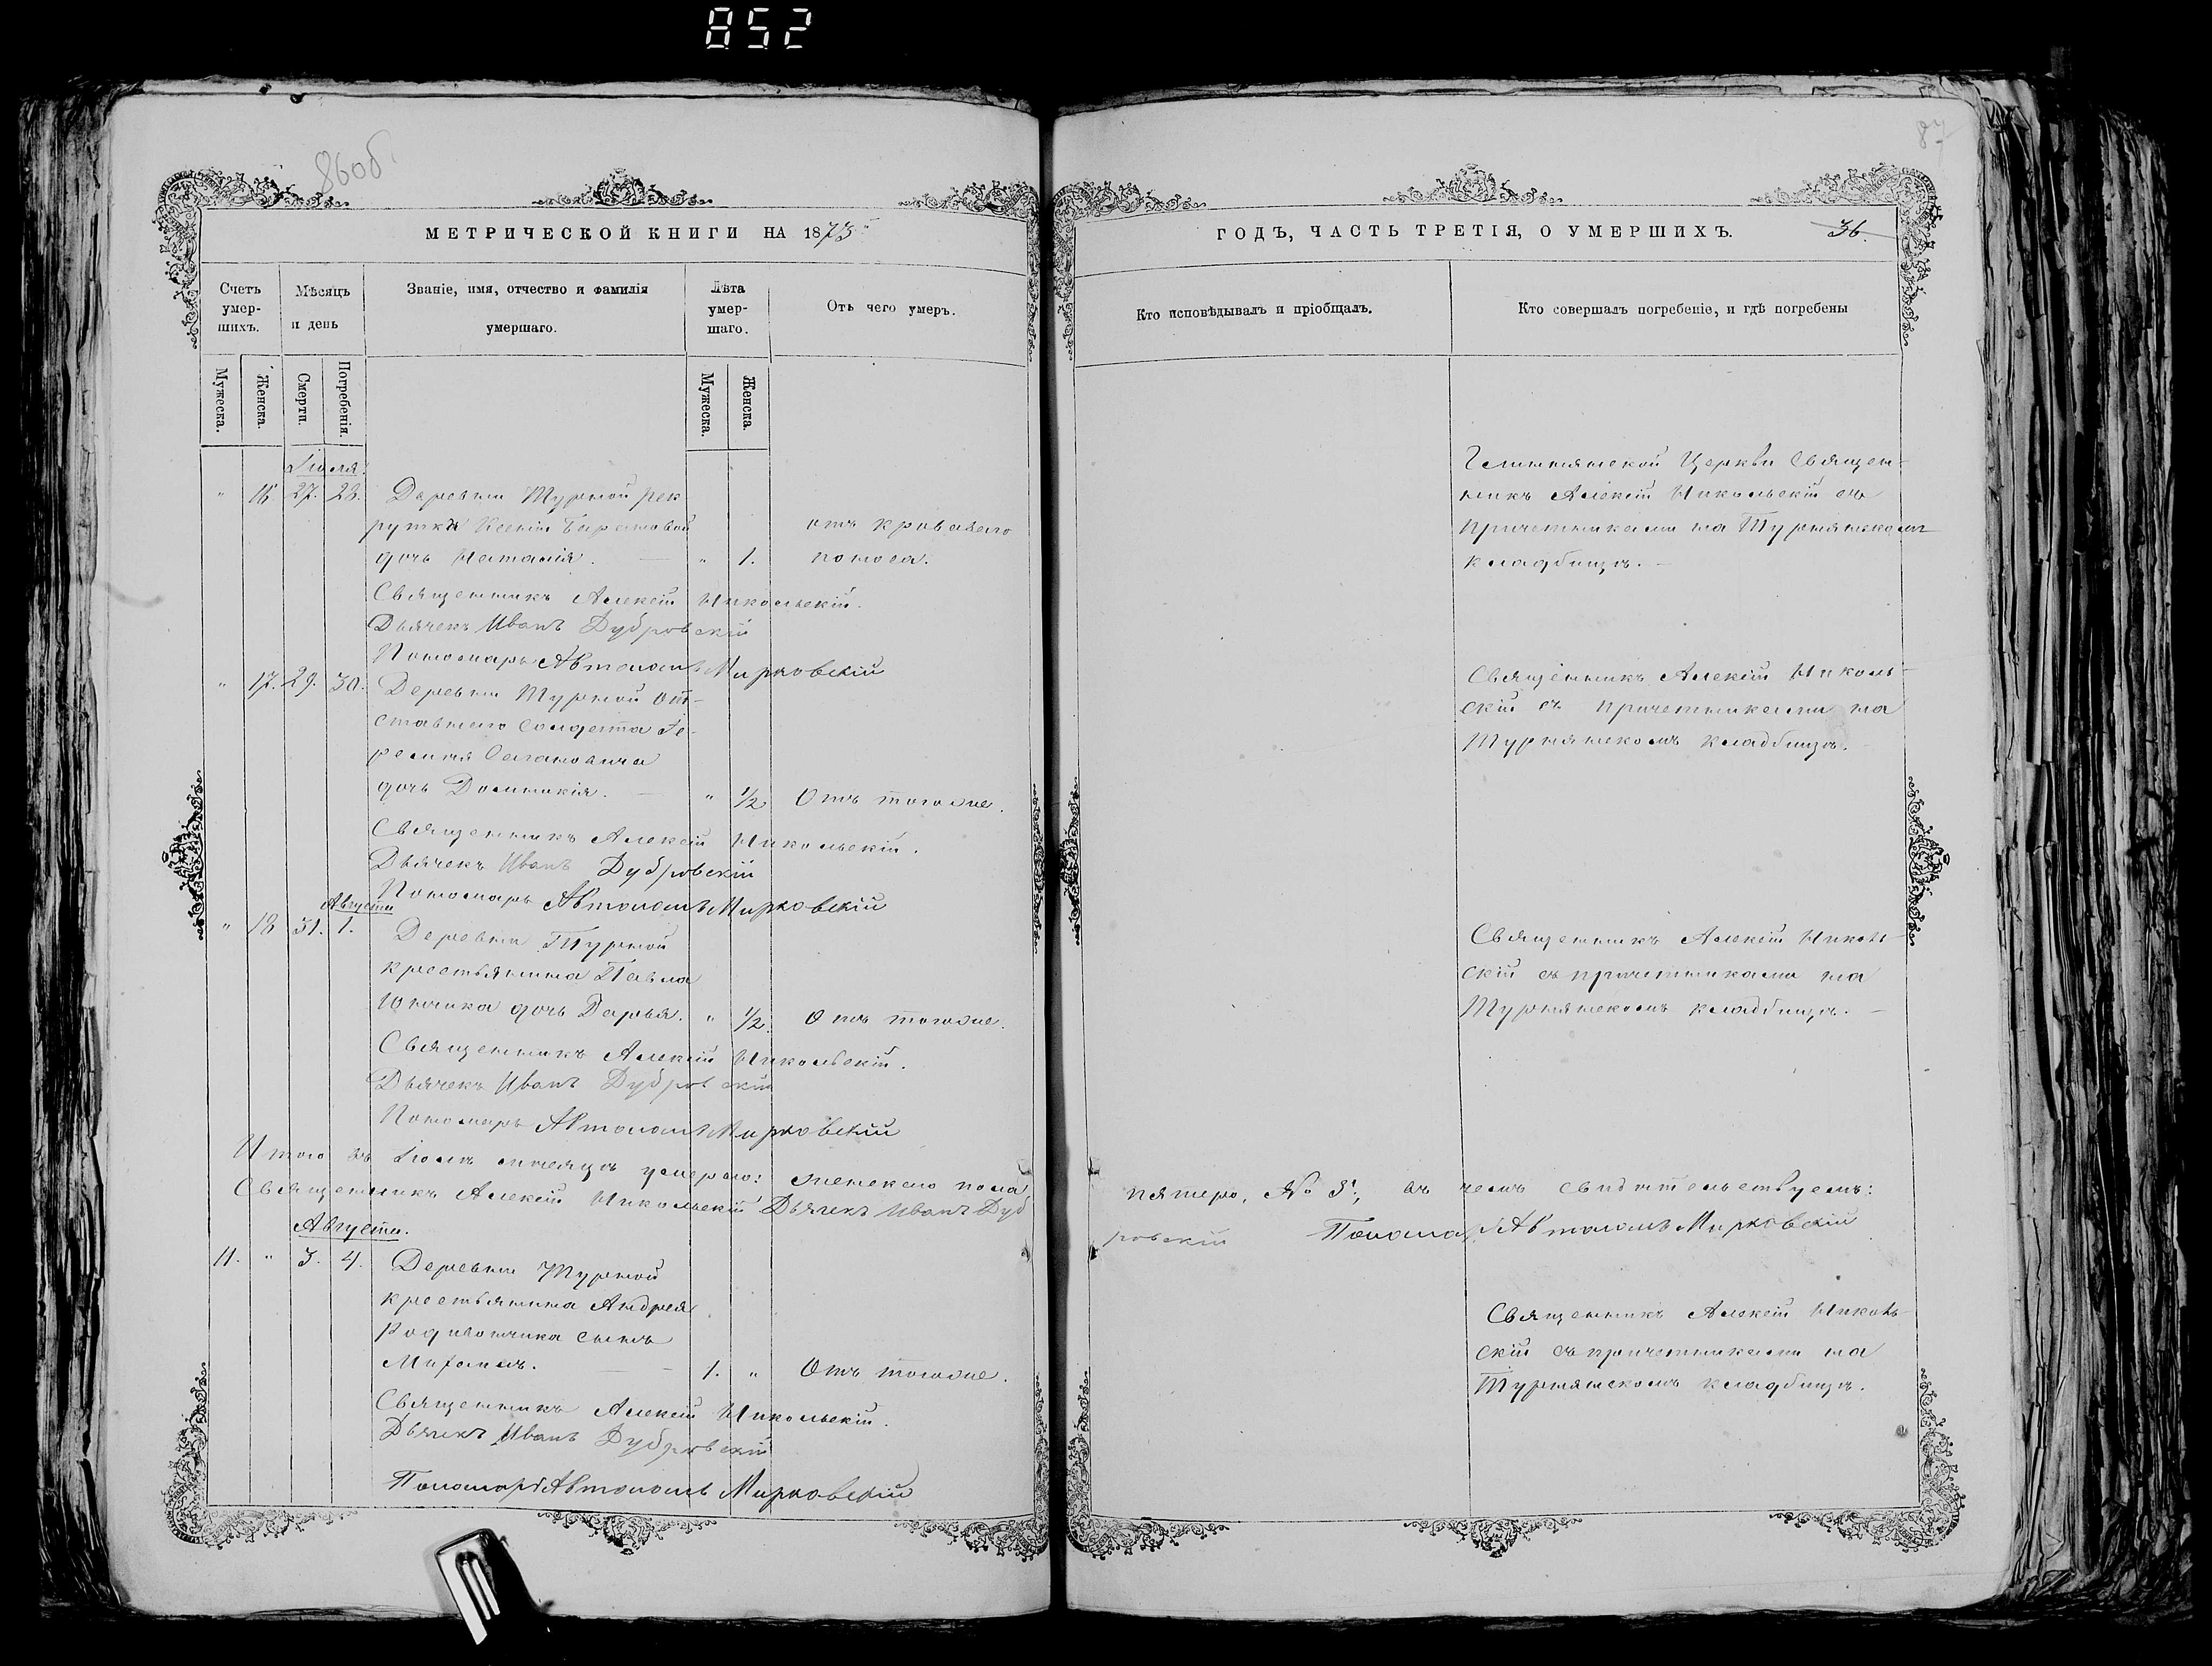 852
86об.
87
МЕТРИЧЕСКОЙ КНИГИ НА 1873
ГОДЪ, ЧАСТЬ ТРЕТІЯ, О УМЕРШИХЪ.
36.
Счетъ умер-шихъ.
Мѣсяцъ и день
Званіе, имя, отчество и фамилія умершаго.
Лѣта умер-шаго.
Отъ чего умеръ.
Кто исповѣдывалъ и пріобщалъ.
Кто совершалъ погребеніе, и гдѣ погребены
Мужеска.
Женска.
Смерти.
Погребенія.
Мужеска.
Женска.
Іюля
" 16 27. 28. Деревни Турной рек
рутки Ксеніи Барановой отъ кроваваго
дочь Наталія. — " 1. поноса.
Священникъ Алексій Никольскій.
Дьячекъ Иванъ Дубровскій
Пономарь Автономъ Мирковскій
Церкви Священ-
никъ Алексій Никольскій съ
причетниками на Турнянскомъ
кладбищѣ. —
" 17. 29. 30. Деревни Турной от-
ставнаго солдата Іе-
ремія
дочь Домникія. — " 1/2 Отъ тогоже.
Священникъ Алексій Никольскій.
Дьячекъ Иванъ Дубровскій
Пономарь Автономъ Мирковскій
Священникъ Алексій Николь-
скій съ причетниками на
Турнянскомъ кладбищѣ. —
Августа
" 18 31. 1. Деревни Турной
крестьянина Павла
Юнчика дочь Дарья. " 1/2. Отъ тогоже.
Священникъ Алексій Никольскій.
Дьячекъ Иванъ Дубровскій
Пономарь Автономъ Мирковскій
Священникъ Алексій Николь-
скій съ причетниками на
Турнянскомъ кладбищѣ. —
Итого въ Іюлѣ мѣсяцѣ умерло: женскаго пола пятеро, № 5, въ чемъ свидѣтельствуемъ:
Священникъ Алексій Никольскій Дьячекъ Иванъ Дубровскій Пономарь Автономъ Мирковскій
Августа.
11. " 3. 4. Деревни Турной
крестьянина Андрея
Родивончика сынъ
— 1. " Отъ тогоже.
Священникъ Алексій Никольскій.
Дьячекъ Иванъ Дубровскій
Пономарь Автономъ Мирковскій
Священникъ Алексій Николь-
скій съ причетниками на
Турнянскомъ кладбищѣ.